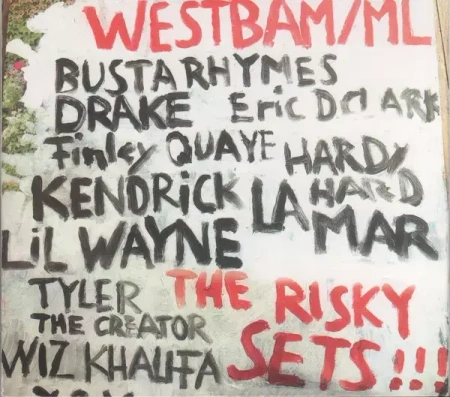 WESTBAM/ML
BUSTA RHYMES
DRAKE Eric D CLARK
Finley QUAYE HARDY
KENDRICK LA HARD
MAR
LIL WAYNE
TYLER THE RISKY
THE CREATOR
WIZ KHALIFA SETS!!!